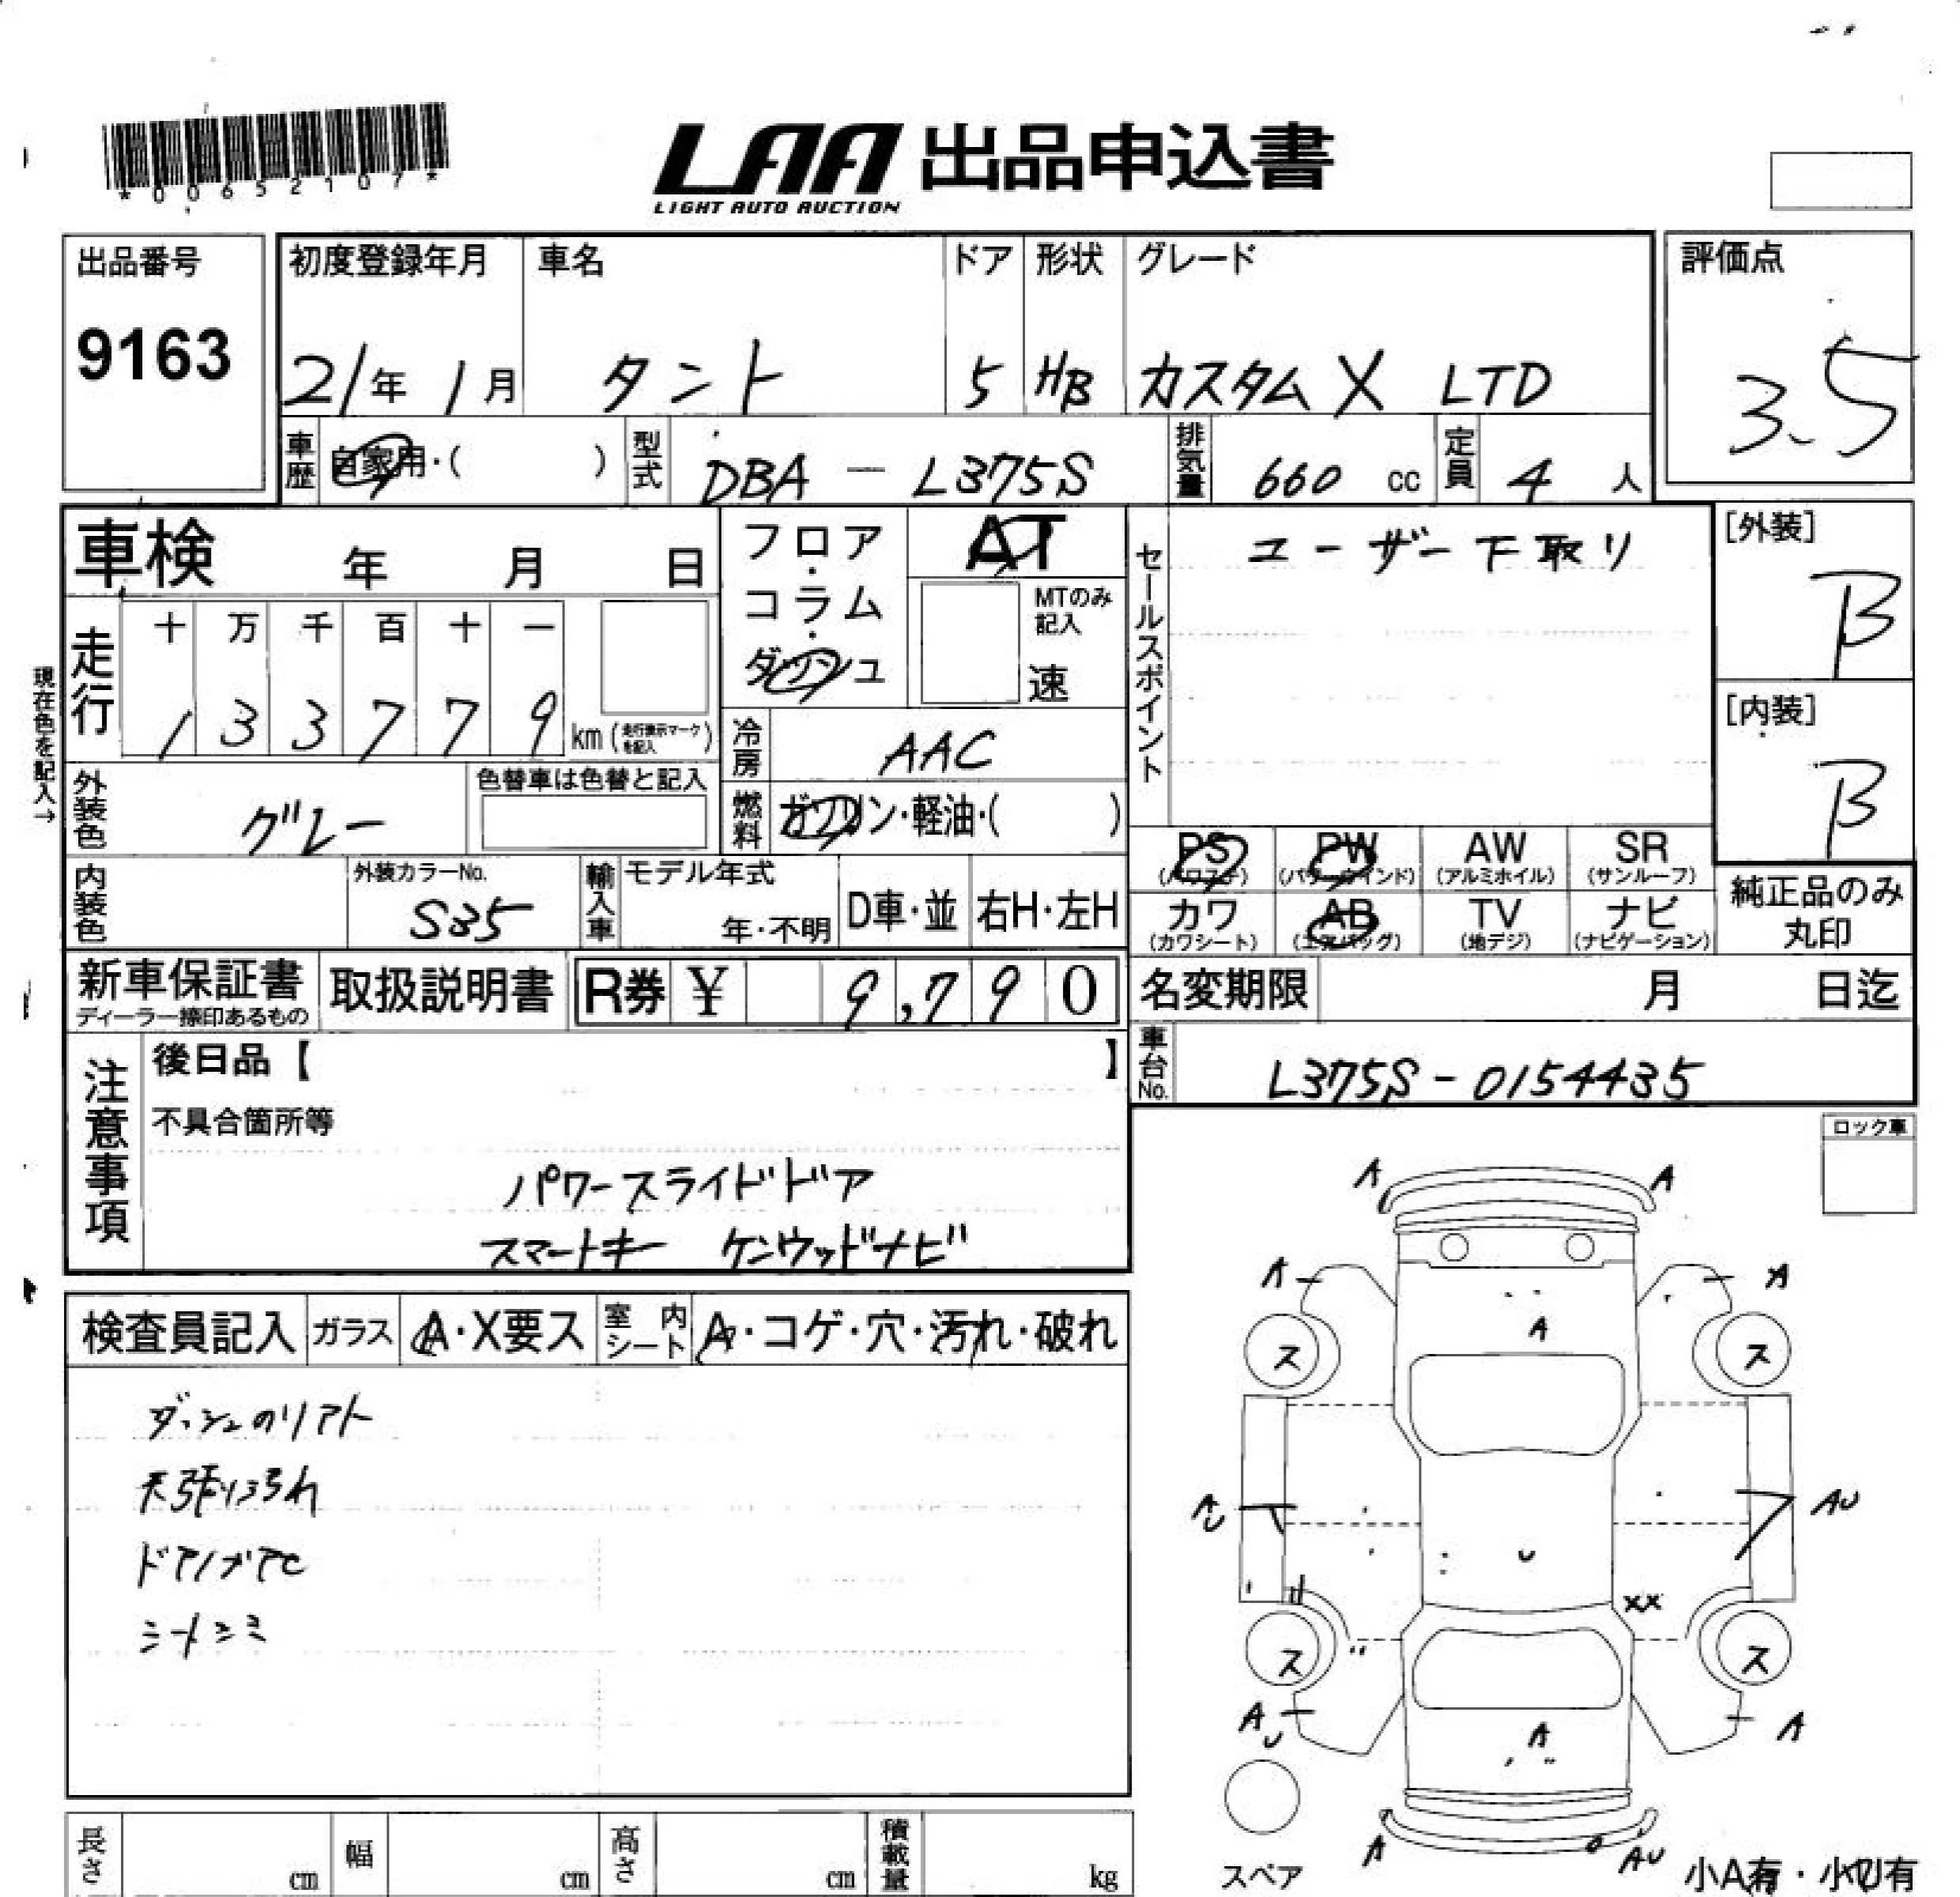 *00652107*
LAA 出品申込書
LIGHT AUTO AUCTION
出品番号
9163
初度登録年月 車名 ドア 形状 グレード
21年 1月 タント 5 HB カスタムX LTD
評価点
3.5
車歴 自家用・( ) 型式 DBA - L375S 排気量 660 cc 定員 4 人
車検 年 月 日
フロア・コラム・ダッシュ
AT
MTのみ記入
速
現在色を記入→
走行 十 万 千 百 十 一
1 3 3 7 7 9 km (走行表示マークを記入)
冷房 AAC
燃料 ガソリン・軽油・( )
外装色 グレー 色替車は色替と記入
内装色 外装カラーNo. S35
輸入車 モデル年式 年・不明 D車・並 右H・左H
セールスポイント
ユーザー下取り
[外装]
B
[内装]
B
PS PW AW SR
(パワステ) (パワーウインド) (アルミホイル) (サンルーフ)
カワ AB TV ナビ
(カワシート) (エアバッグ) (地デジ) (ナビゲーション)
純正品のみ
丸印
新車保証書 取扱説明書 R券 ¥ 9,790
ディーラー捺印あるもの
名変期限 月 日迄
車台No. L375S-0154435
注意事項
後日品【 】
不具合箇所等
パワースライドドア
スマートキー ケンウッドナビ
ロック車
検査員記入 ガラス A・X要ス 室内シート A・コゲ・穴・汚れ・破れ
天張り汚れ
シートシミ
A A
A A
A
ス ス
AU AU
U
XX
ス ス
AU A
A
A AU
スペア
小A有・小U有
長さ cm 幅 cm 高さ cm 積載量 kg